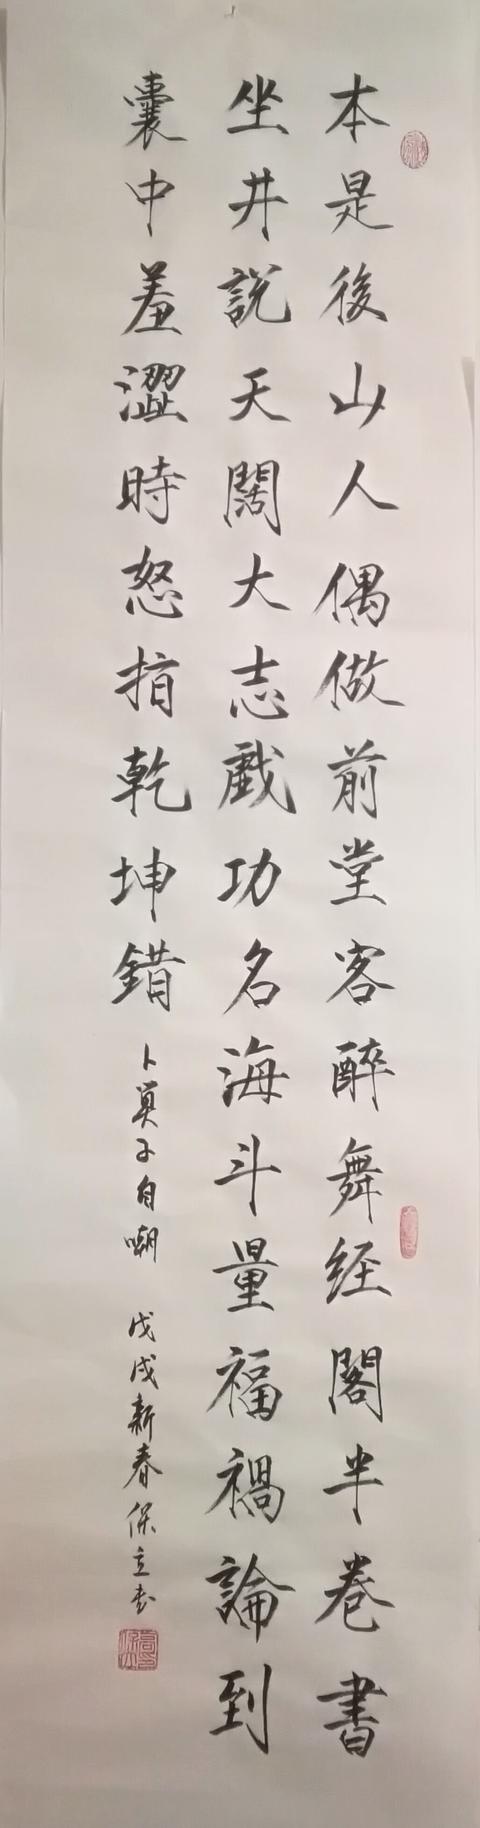 本是後山人偶做前堂客醉舞経閣半卷書
坐井說天闊大志戲功名海斗量福禍論到
囊中羞澀時怒指乾坤錯
卜算子自嘲 戊戌新春保立书